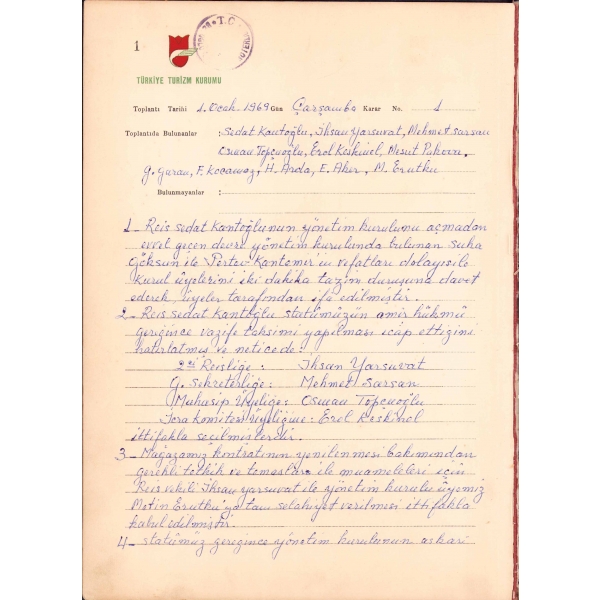 1
T.C.
TÜRKİYE TURİZM KURUMU
Toplantı Tarihi 1. Ocak. 1969 Gün Çarşamba Karar No. 1
Toplantıda Bulunanlar : Sedat Kantoğlu, İhsan Yarsuvat, Mehmet Sarsan
Osman Topcuoğlu, Erol Keskinel, Mesut
G. Guran, F. Kocamaz, H. Arda, E. Aker, M. Erutku
Bulunmayanlar :
1- Reis Sedat Kantoğlunun yönetim kurulunu açmadan
evvel geçen devre yönetim kurulunda bulunan Suha
Göksun ile Pertev Kantemir'in vefatları dolayısile
kurul üyelerini iki dakika tazim duruşuna davet
ederek, üyeler tarafından ifa edilmiştir.
2- Reis Sedat Kantoğlu statümüzün amir hükmü
gereğince vazife taksimi yapılması icap ettiğini
hatırlatmış ve neticede:
2ci Reisliğe : İhsan Yarsuvat
G. Sekreterliğe : Mehmet Sarsan
Muhasip Üyeliğe : Osman Topcuoğlu
İcra Komitesi Üyeliğine : Erol Keskinel
ittifakla seçilmişlerdir.
3- Mağazamız kontratının yenilenmesi bakımından
gerekli tetkik ve temaslar ile muameleleri için
Reis vekili İhsan Yarsuvat ile yönetim kurulu üyemiz
Metin Erutku'ya tam selahiyet verilmesi ittifakla
kabul edilmiştir.
4- Statümüz gereğince yönetim kurulunun askari